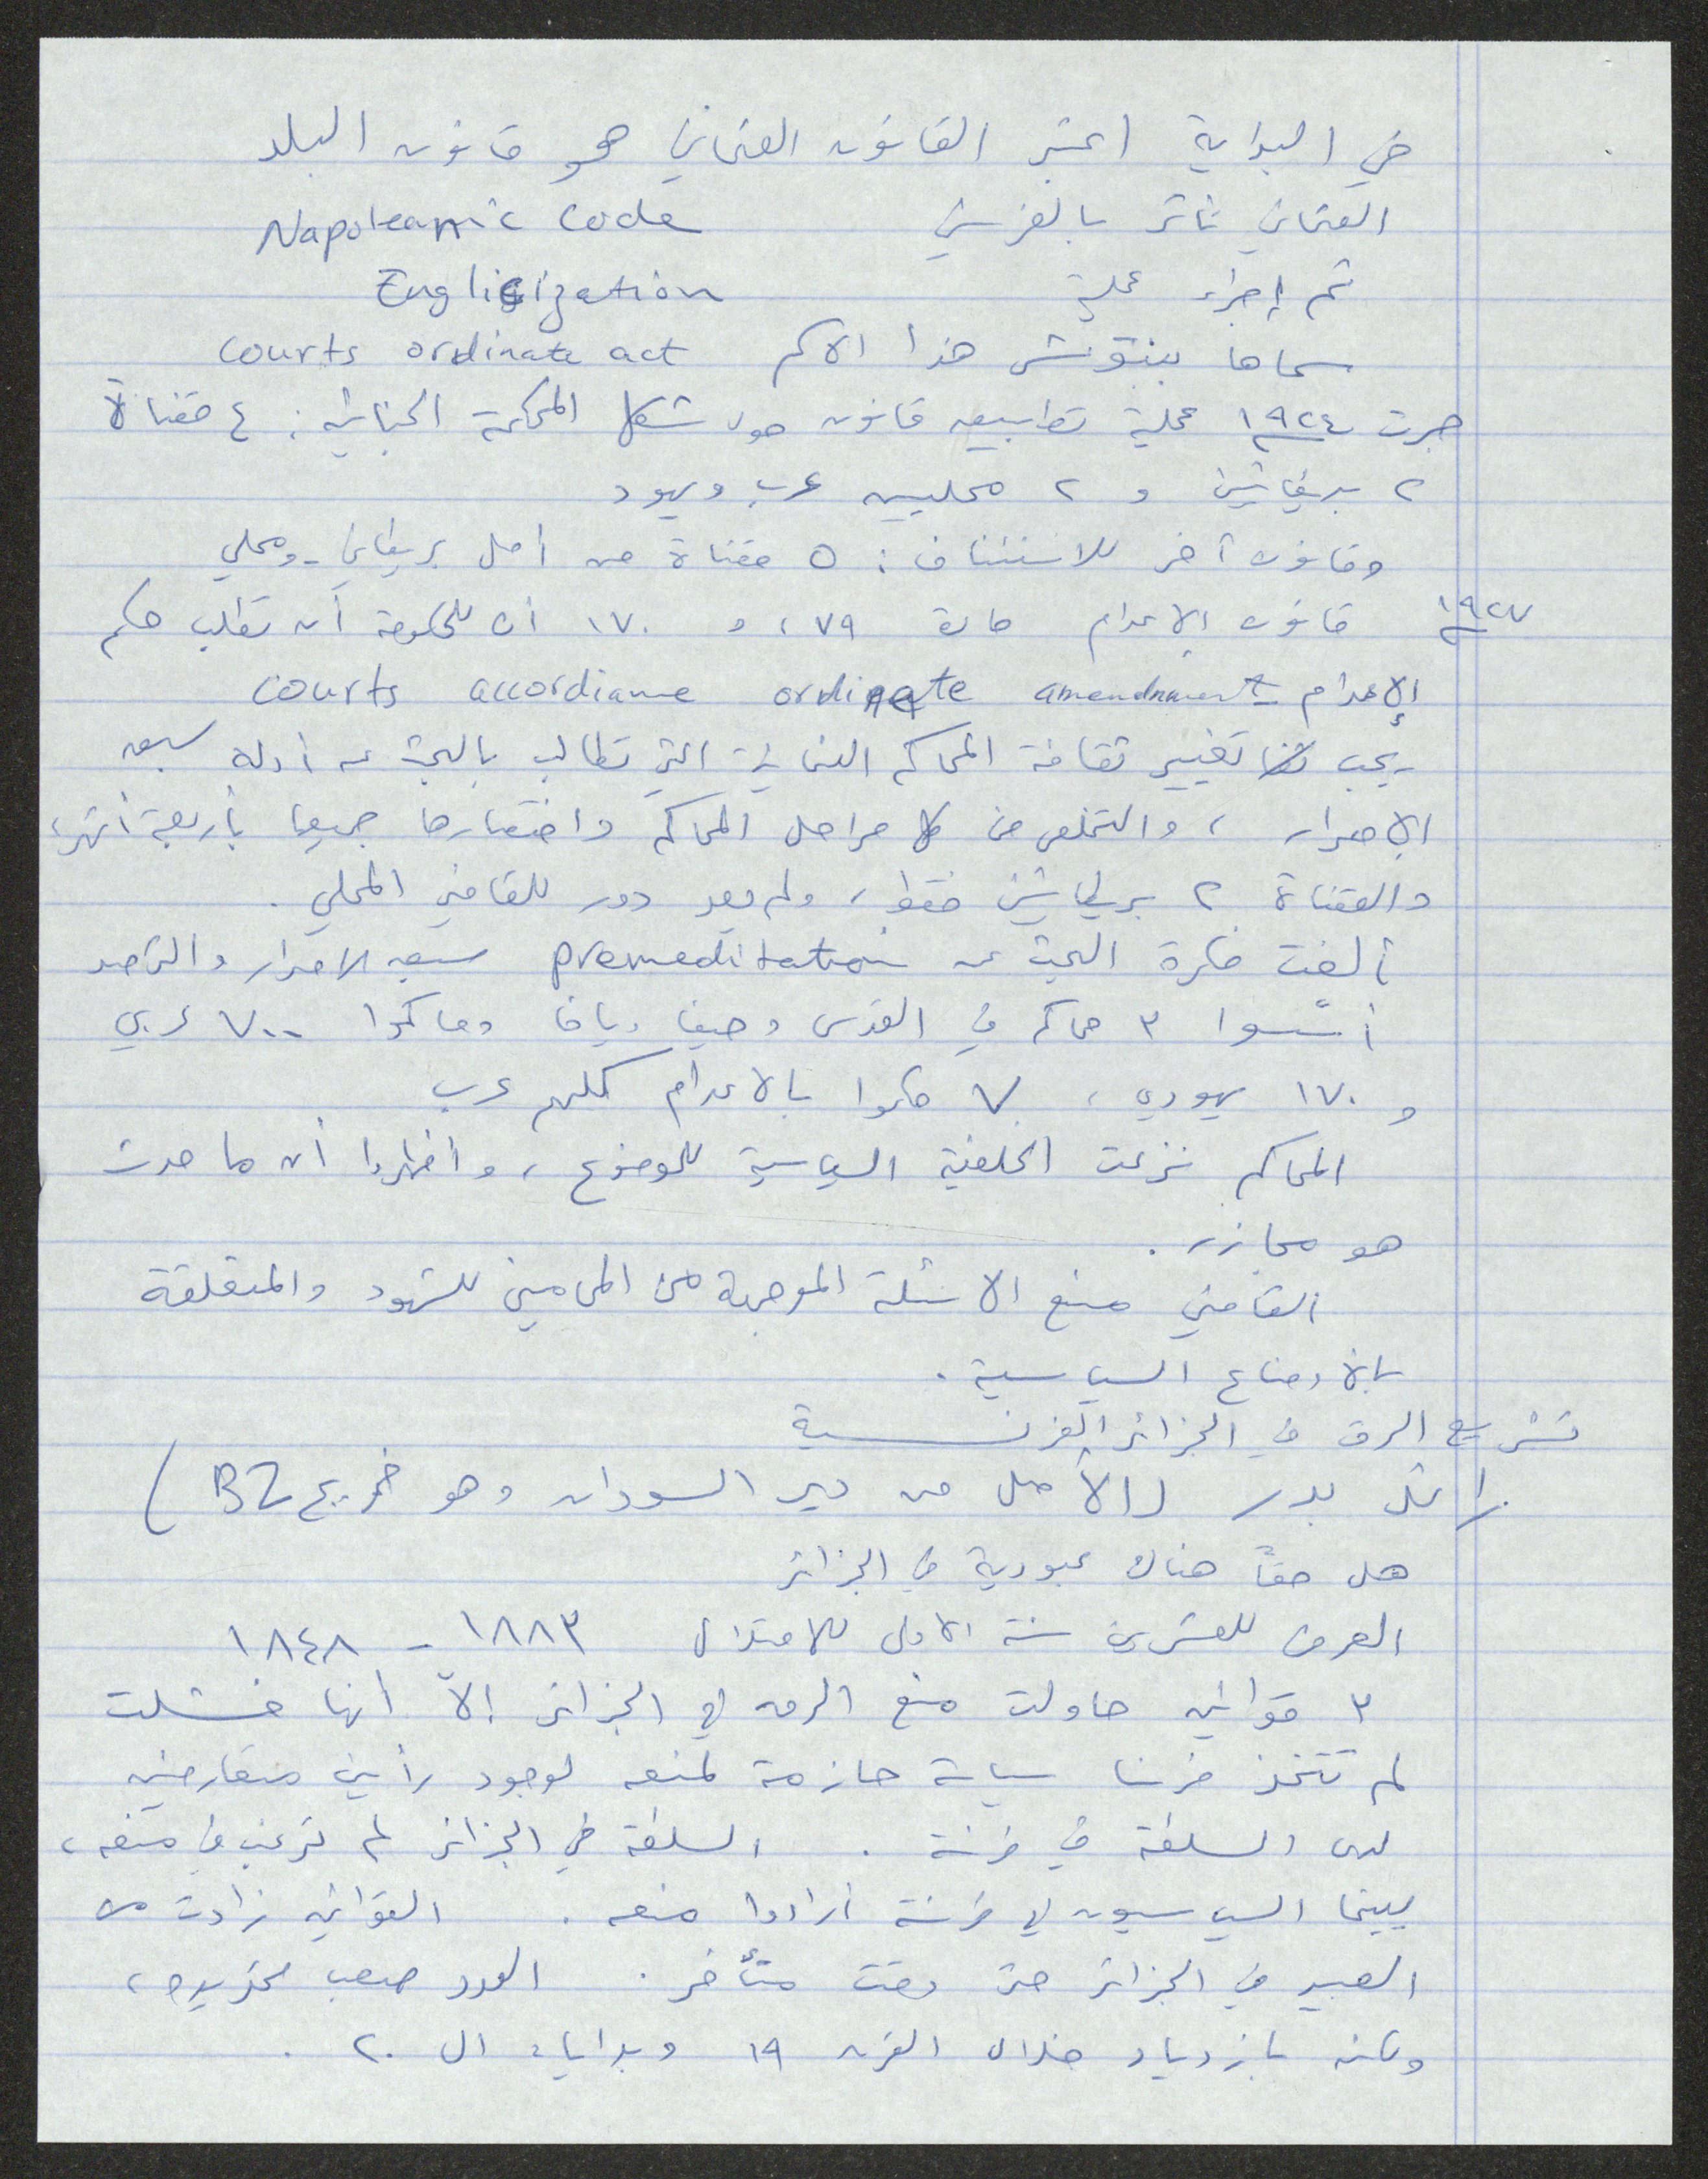 في البداية اعتبر القانون العثماني هو قانون البلد
العثماني تأثر بالفرنسي Napoleanic Code
تم إجراء عملية Englicization
سماها بينتوتش هذا الاسم courts ordinate act
جرت ١٩٢٤ عملية تطبيق قانون حول شكل المحكمة الجنائية: ٤ قضاة
٢ بريطانيين و ٢ محليين عرب ويهود
وقانون آخر للاستئناف: ٥ قضاة من أصل بريطاني ومحلي
١٩٢٧ قانون الإعدام مادة ٧٩، و ١٧٠ ان للحكومة أن تطلب حكم
الإعدام courts accordiance ordinate amendnament
يجب تغيير ثقافة المحاكم العثمانية التي تطالب بالبحث عن أدلة سبق
الإصرار، والتخلص من كل مراحل المحاكم واختصارها جميعا بأربعة أشهر،
والقضاة ٢ بريطانيين فقط، ولم يعد دور للقاضي المحلي.
ألغت فكرة البحث عن premeditation سبق الاصرار والترصد
أسّسوا ٣ محاكم في القدس وحيفا ويافا وحاكموا ٧٠٠ عربي
و ١٧٠ يهودي، ٧ حكموا بالاعدام كلهم عرب
المحاكم نزعت الخلفية السياسية للموضوع، واظهروا أن ما حدث
هو مجازر.
القاضي منع الاسئلة الموجهة من المحامين للشهود والمتعلقة
بالأوضاع السياسية.
تشريع الرق في الجزائر الفرنسية
رائد بدر (الأصل من دير السودان وهو خريج BZ)
هل حقاً هناك عبودية في الجزائر
العرض للعشرين سنة الاولى للاحتلال ١٨٨٣ - ١٨٤٨
٣ قوانين حاولت منع الرق في الجزائر إلاّ انها فشلت
لم تتخذ فرنسا سياسة حازمة لمنعه لوجود رأيين متعارضين
لدى السلطة في فرنسة. السلطة في الجزائر لم ترغب في منعه،
بينما السياسيون في فرنسة أرادوا منعه. القوانين زادت من
العبيد في الجزائر حتى وقت متأخر. العدد صعب تحديده،
ولكنه بازدياد خلال القرن ١٩ وبدايات ال ٢٠.